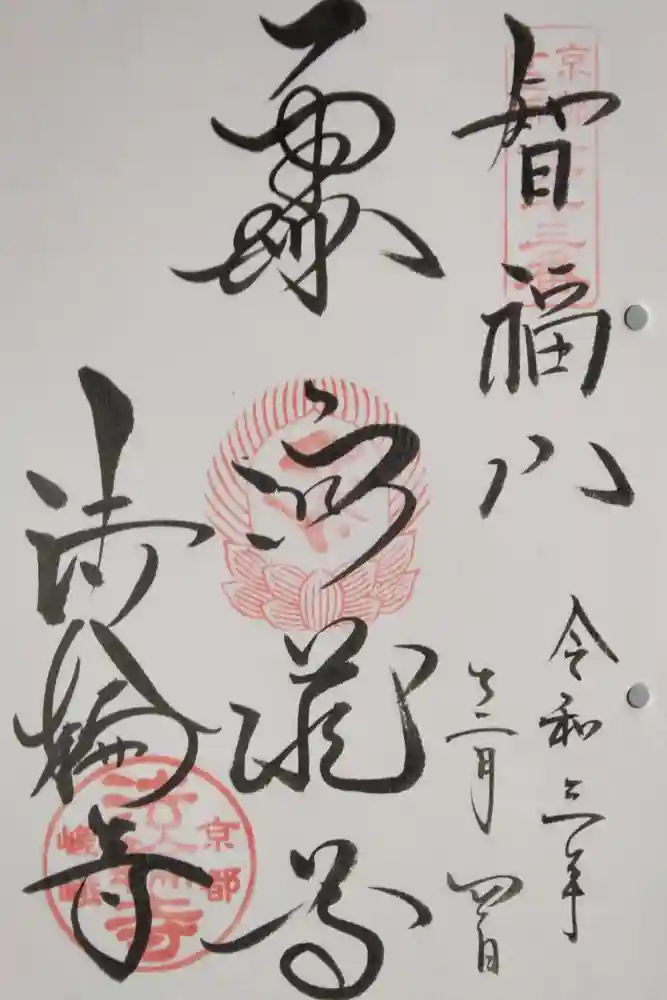 智福山
令和三年
十二月四日
虚空蔵尊
法輪寺
京都
法輪寺
嵯峨